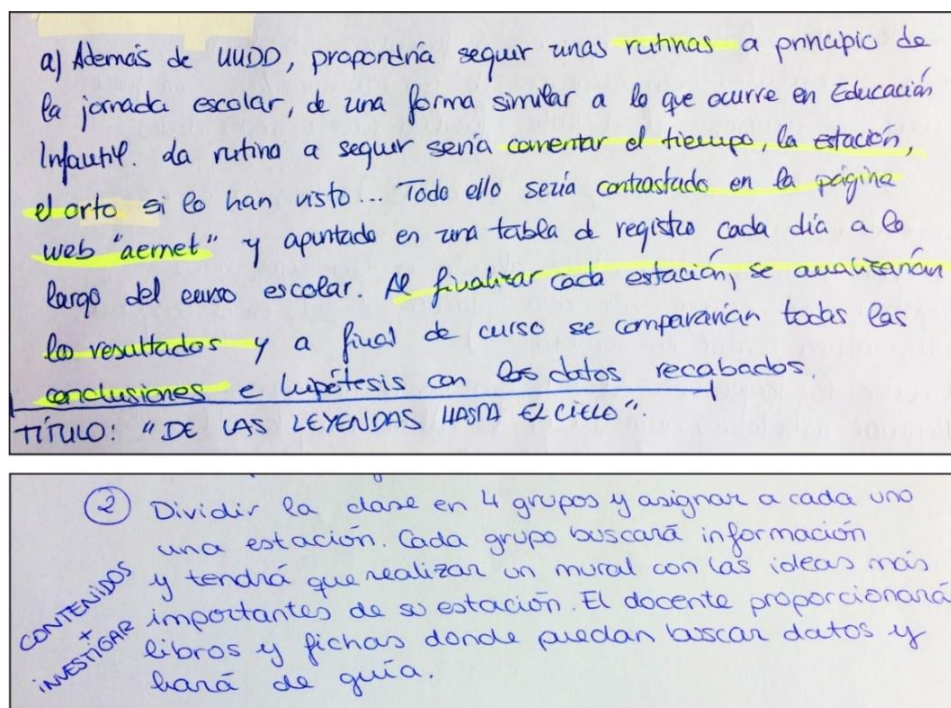 a) Además de UUDD, propondría seguir unas rutinas a principio de
la jornada escolar, de una forma similar a lo que ocurre en Educación
Infantil. La rutina a seguir sería comentar el tiempo, la estación,
el orto si lo han visto... Todo ello sería contrastado en la página
web "aemet" y apuntado en una tabla de registro cada día a lo
largo del curso escolar. Al finalizar cada estación, se analizarían
los resultados y a final de curso se compararían todas las
conclusiones e hipótesis con los datos recabados.
TÍTULO: "DE LAS LEYENDAS HASTA EL CIELO".
② Dividir la clase en 4 grupos y asignar a cada uno
una estación. Cada grupo buscará información
y tendrá que realizar un mural con las ideas más
importantes de su estación. El docente proporcionará
libros y fichas donde puedan buscar datos y
hará de guía.
CONTENIDOS
+
INVESTIGAR